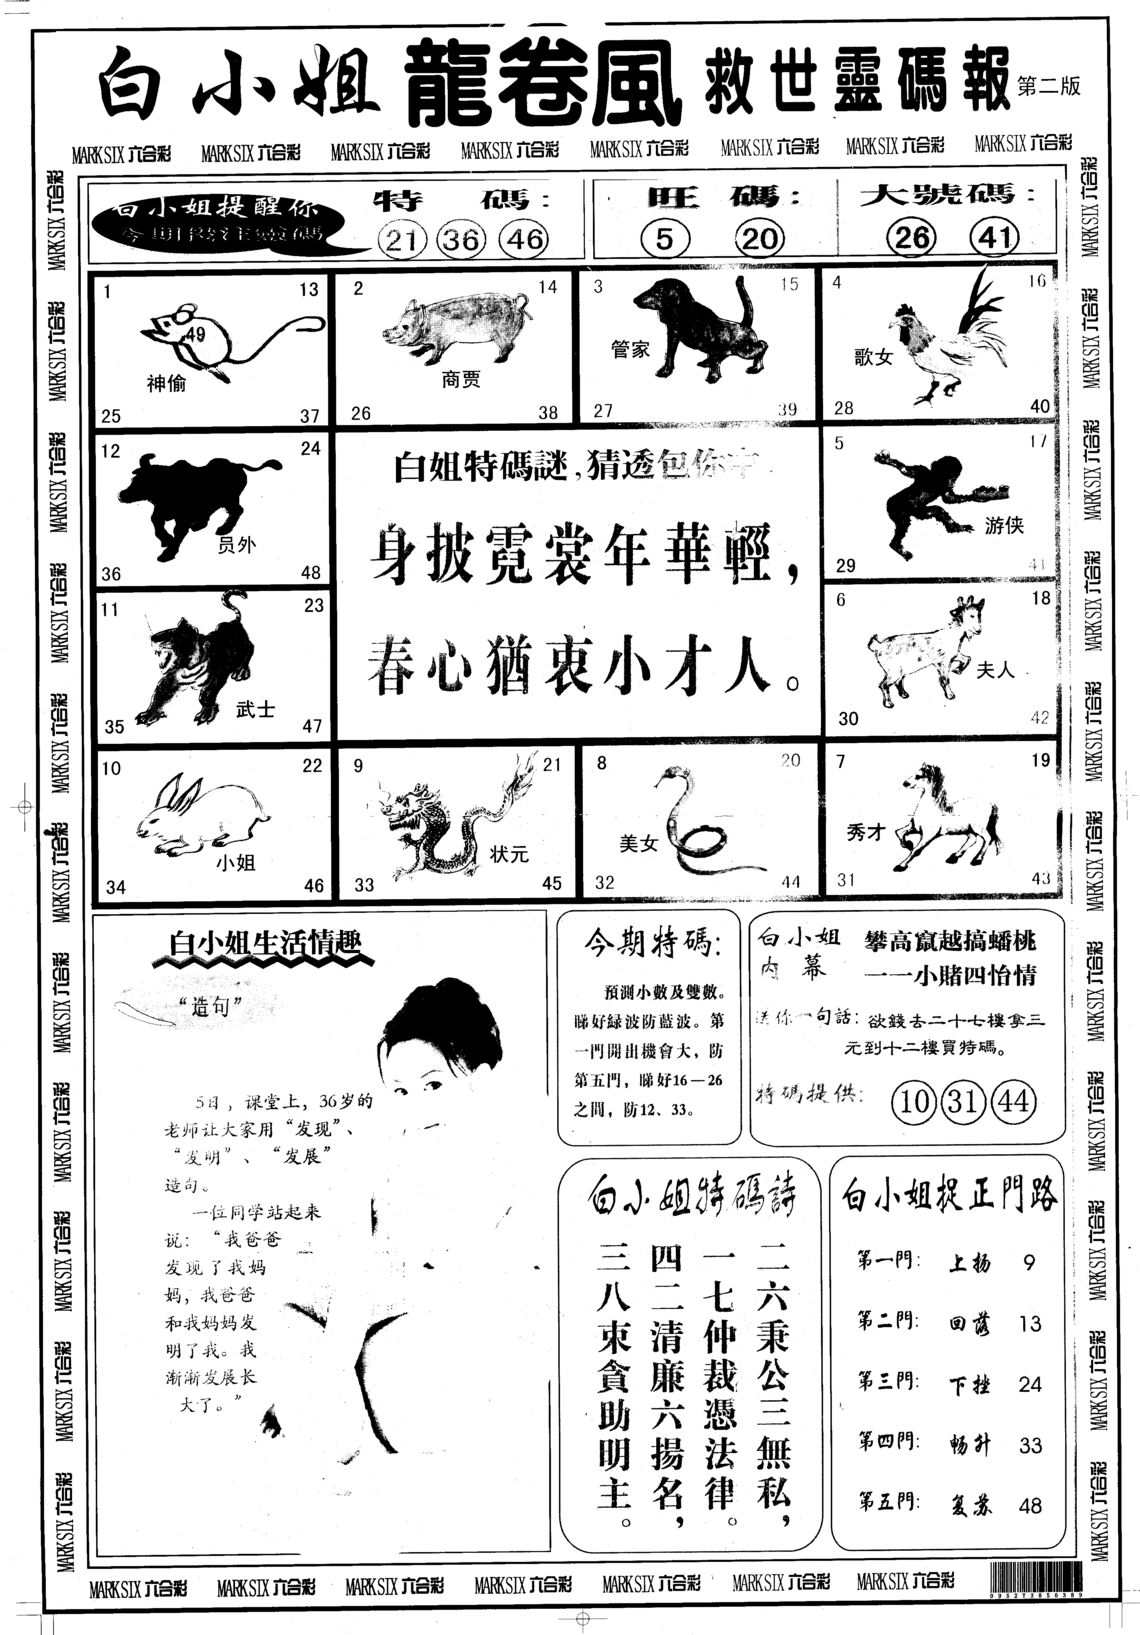 白小姐 龍卷風 救世靈碼報 第二版
MARK SIX 六合彩 MARK SIX 六合彩 MARK SIX 六合彩 MARK SIX 六合彩 MARK SIX 六合彩 MARK SIX 六合彩 MARK SIX 六合彩 MARK SIX 六合彩
白小姐提醒你
特碼：
21 36 46
旺碼：
5 20
大號碼：
26 41
1 13
49
神偷
25 37
2 14
商贾
26 38
3 15
管家
27 39
4 16
歌女
28 40
12 24
员外
36 48
白姐特碼謎，猜透包你
身披霓裳年華輕，
春心猶衷小才人。
5 17
游侠
29 41
11 23
武士
35 47
6 18
夫人
30 42
10 22
小姐
34 46
9 21
状元
33 45
8 20
美女
32 44
7 19
秀才
31 43
白小姐生活情趣
“造句”
5日，课堂上，36岁的
老师让大家用“发现”、
“发明”、“发展”
造句。
一位同学站起来
说：“我爸爸
发现了我妈
妈，我爸爸
和我妈妈发
明了我。我
渐渐发展长
大了。”
今期特碼：
預測小數及雙數。
睇好緑波防藍波。第
一門開出機會大，防
第五門，睇好16－26
之間，防12、33。
白小姐
内幕
攀高竄越搞蟠桃
一一小賭四怡情
送你一句話：欲錢去二十七樓拿三
元到十二樓買特碼。
特碼提供：
10 31 44
白小姐特碼詩
二六秉公三無私，
一七仲裁憑法律。
四二清廉六揚名，
三八束貪助明主。
白小姐捉正門路
第一門： 上扬 9
第二門： 回落 13
第三門： 下挫 24
第四門： 畅升 33
第五門： 复苏 48
MARK SIX 六合彩 MARK SIX 六合彩 MARK SIX 六合彩 MARK SIX 六合彩 MARK SIX 六合彩 MARK SIX 六合彩 MARK SIX 六合彩